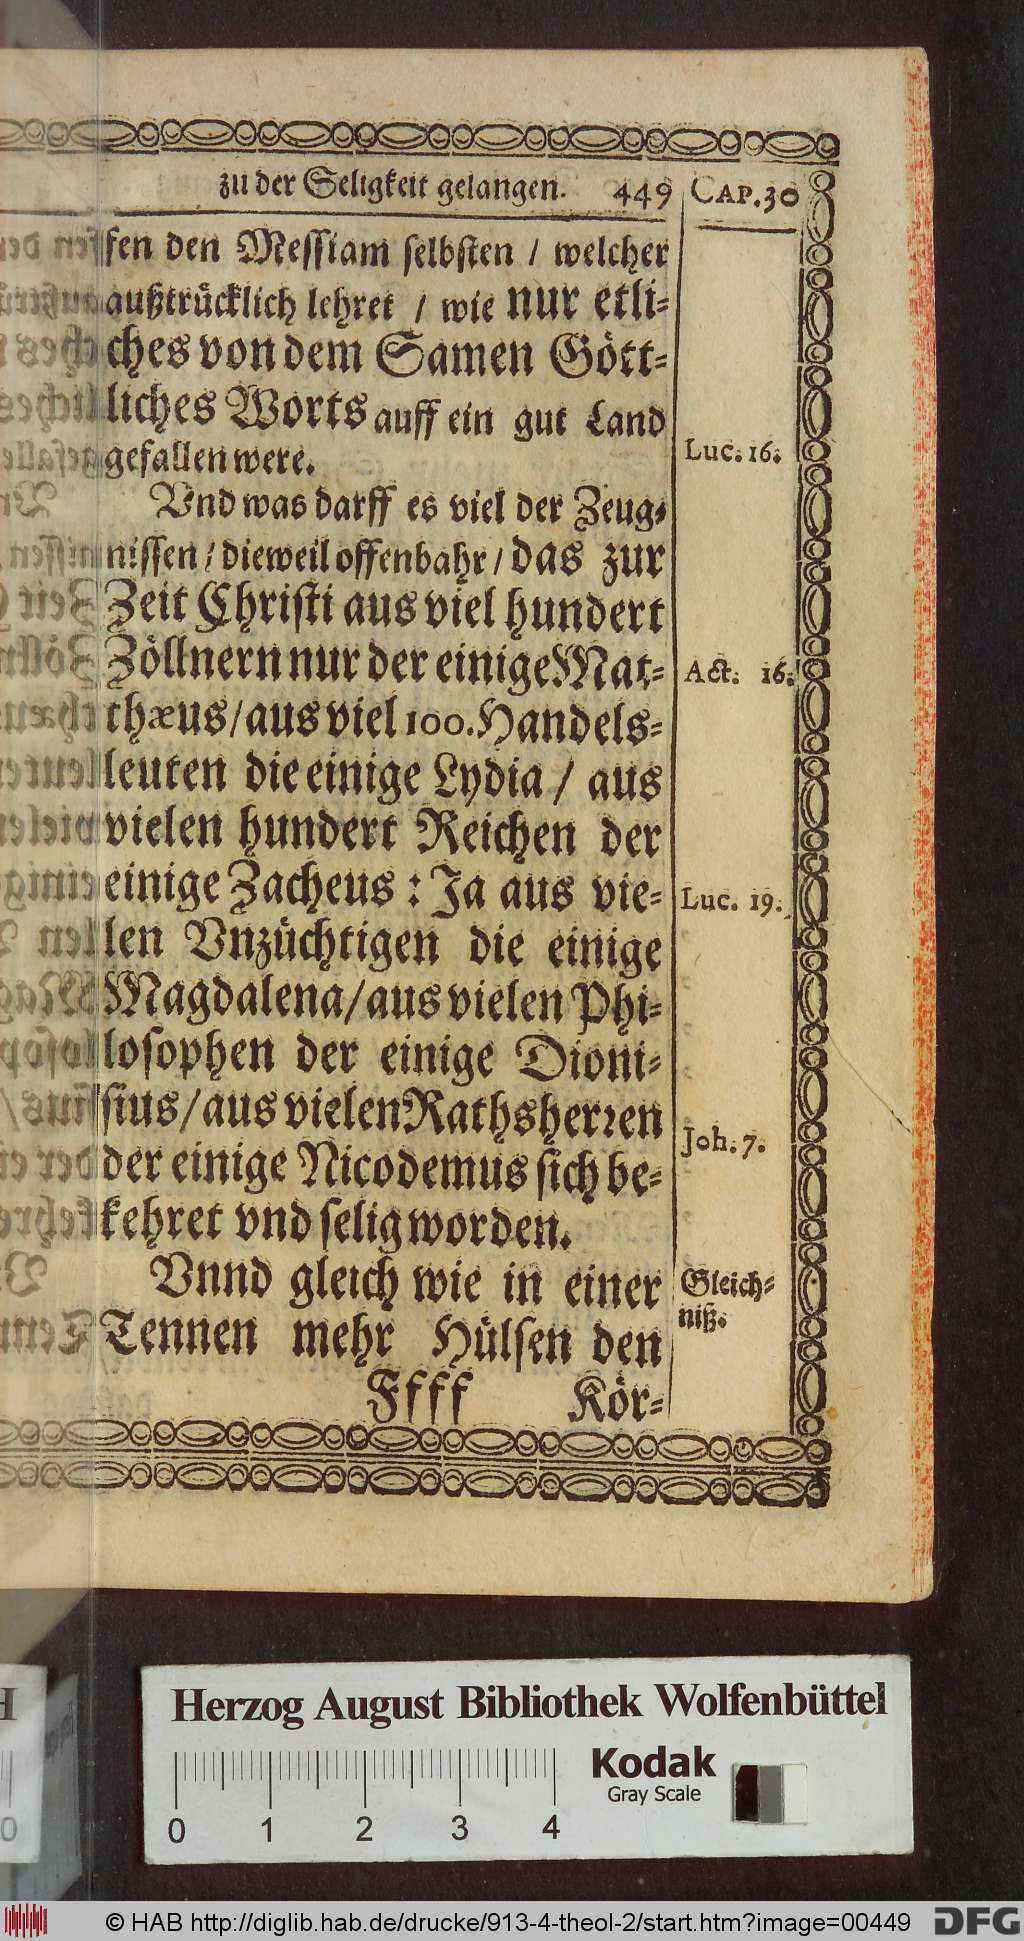 zu der Seligkeit gelangen. 449 CAP. 30
fen den Messiam selbsten / welcher
außtrücklich lehret / wie nur etli-
ches von dem Samen Gött-
liches Worts auff ein gut Land
gefallen were.
Luc. 16.
Vnd was darff es viel der Zeug-
nissen / dieweil offenbahr / das zur
Zeit Christi aus viel hundert
Zöllnern nur der einige Mat-
Act. 16.
thæus / aus viel 100. Handels-
leuten die einige Lydia / aus
vielen hundert Reichen der
einige Zacheus : Ja aus vie-
Luc. 19.
len Vnzüchtigen die einige
Magdalena / aus vielen Phi-
losophen der einige Dioni-
sius / aus vielen Rathsherren
Joh. 7.
der einige Nicodemus sich be-
kehret vnd selig worden.
Vnnd gleich wie in einer
Gleich-
niß.
Tennen mehr Hülsen den
Ffff Kör-
Herzog August Bibliothek Wolfenbüttel
Kodak
Gray Scale
0 1 2 3 4
© HAB http://diglib.hab.de/drucke/913-4-theol-2/start.htm?image=00449
DFG